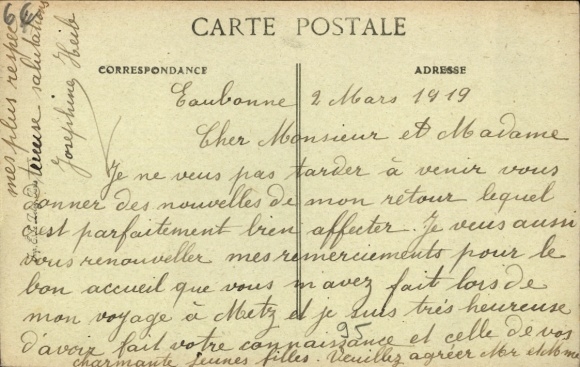 66
CARTE POSTALE
CORRESPONDANCE
ADRESSE
Eaubonne 2 Mars 1919
Cher Monsieur et Madame
Je ne veus pas tarder à venir vous
donner des nouvelles de mon retour lequel
c'est parfaitement bien affecter. Je veus aussi
vous renouveller mes remerciements pour le
bon accueil que vous m avez fait lors de
mon voyage à Metz et je suis très heureuse
d'avoir fait votre connaissance et celle de vos
95
charmante jeunes filles. Veuillez agréer Mr et Mme
mes plus respec
tueuse salutations
Josephine Heib